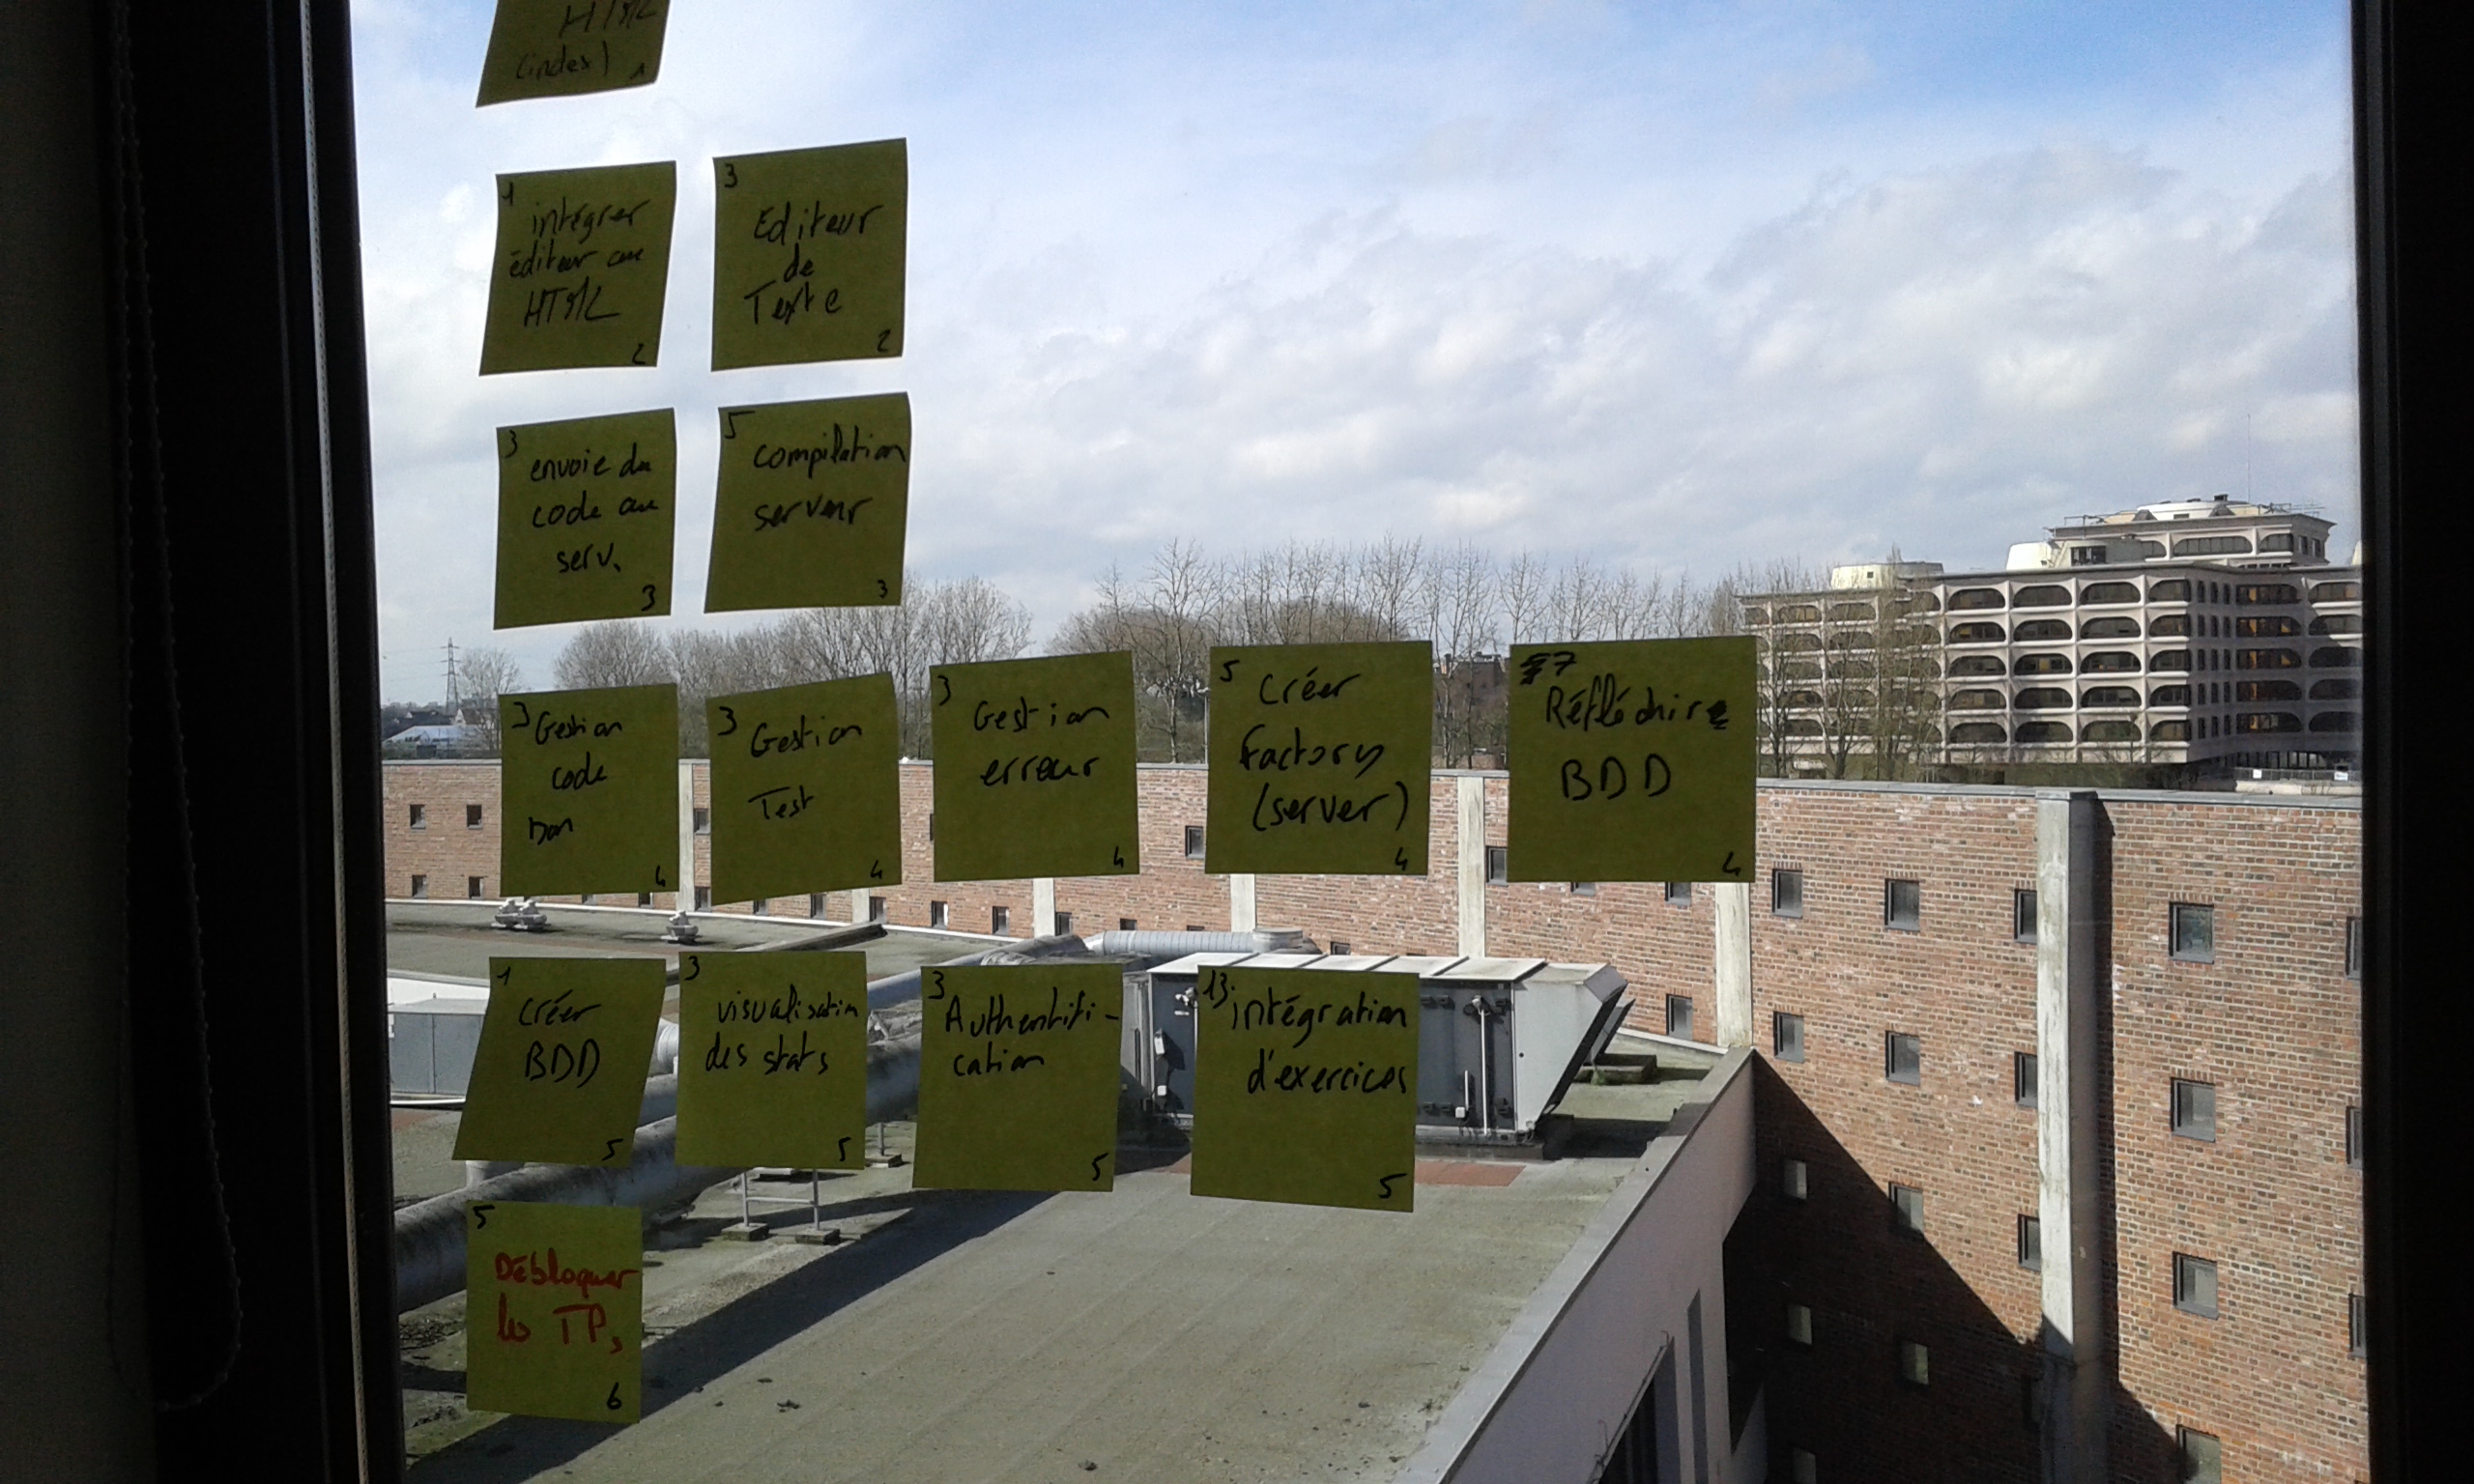 HTML
(index) 1
1
intégrer
éditeur au
HTML
2
3
Editeur
de
Texte
2
3
envoie du
code au
serv.
3
5
compilation
serveur
3
3
Gestion
code
bon
4
3
Gestion
Test
4
3
Gestion
erreur
4
5
Créer
Factory
(server)
4
7
Réfléchire
BDD
4
1
Créer
BDD
5
3
visualisation
des stats
5
3
Authentifi-
cation
5
13
intégration
d'exercices
5
5
Débloquer
les TPs
6